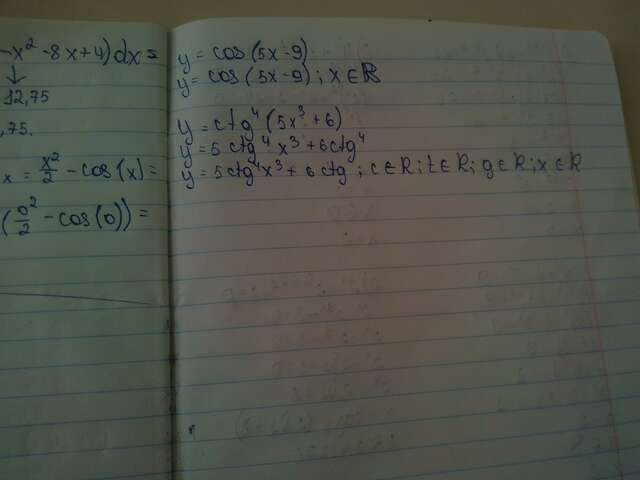 -x² -8x+4)dx =
↓
12,75
,75.
x = x²/2 - cos(x) =
(0²/2 - cos(0)) =
y = cos(5x-9)
y = cos(5x-9); x∈ℝ
y = ctg⁴(5x³+6)
y = 5ctg⁴x³+6ctg⁴
y = 5ctg⁴x³+6ctg; c∈ℝ; t∈ℝ; g∈ℝ; x∈ℝ